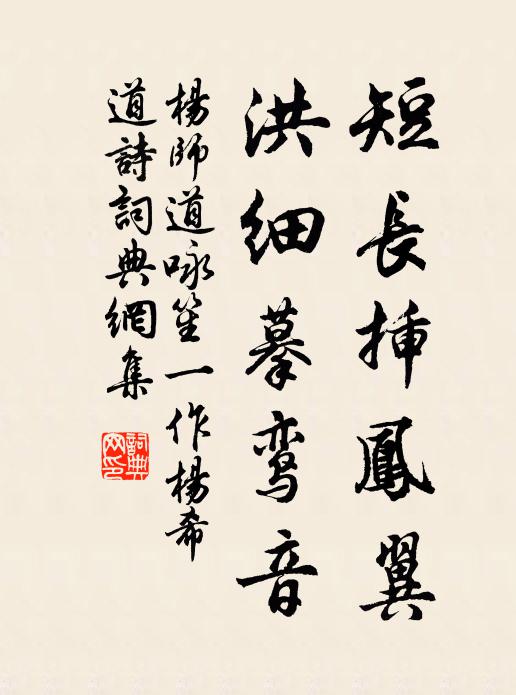 短長插鳳翼
洪細摹鸾音
楊師道咏笙一作楊希
道詩詞典網集
詞典
网印